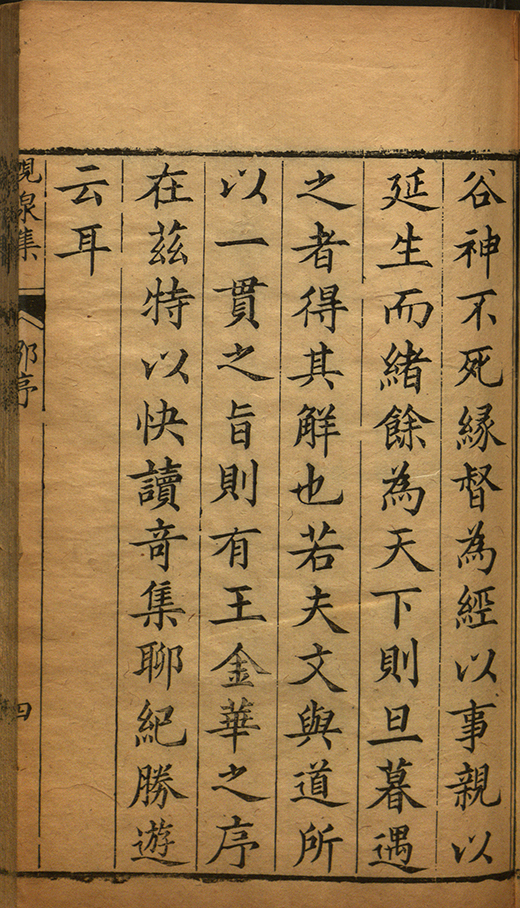 谷神不死緣督為經以事親以
延生而緒餘為天下則旦暮遇
之者得其解也若夫文與道所
以一貫之旨則有王金華之序
在茲特以快讀竒集聊紀勝遊
云耳
峴泉集
序
四